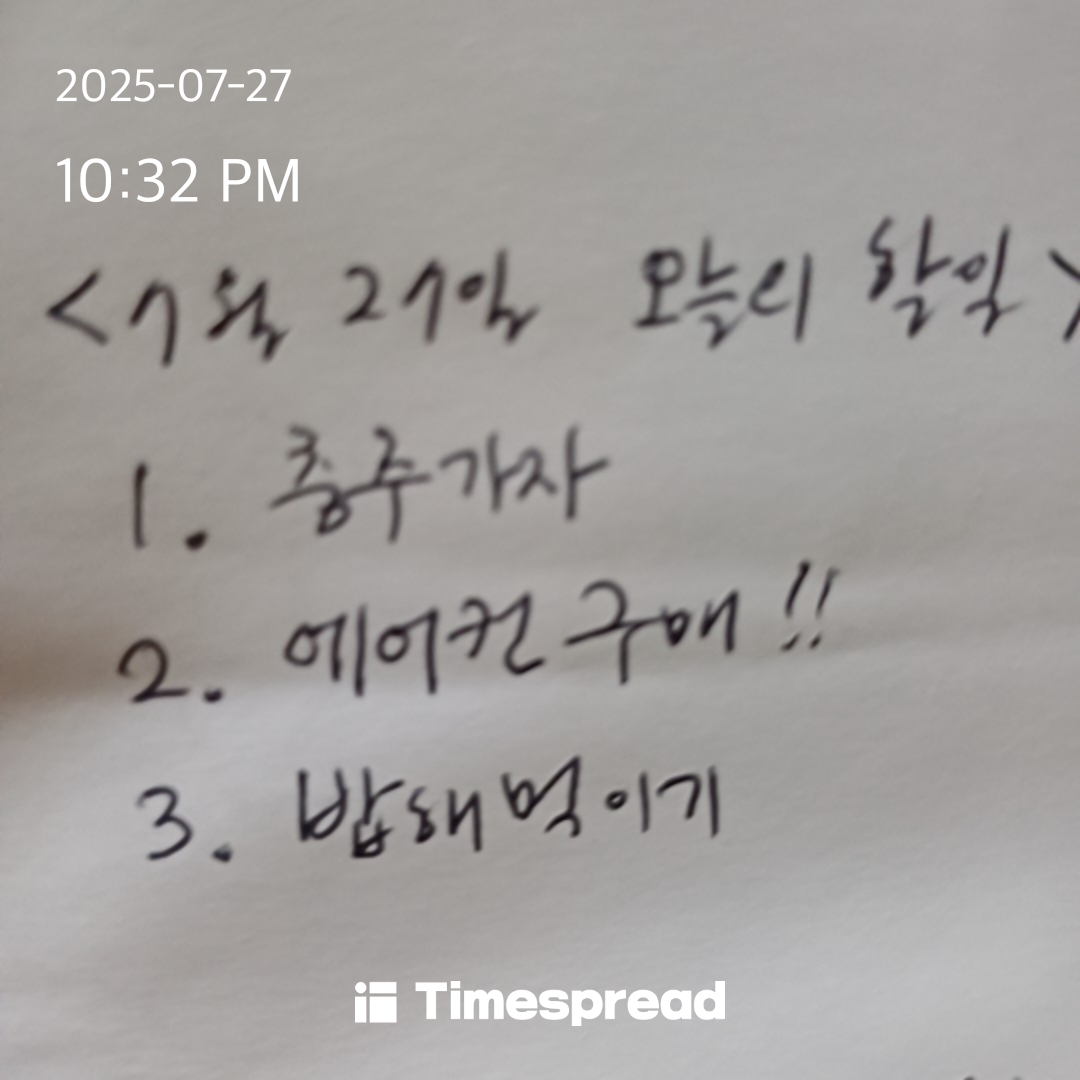 2025-07-27
10:32 PM
<7월 27일 오늘의 할일>
1. 충주가자
2. 에어컨구매!!
3. 밥해먹이기
Timespread